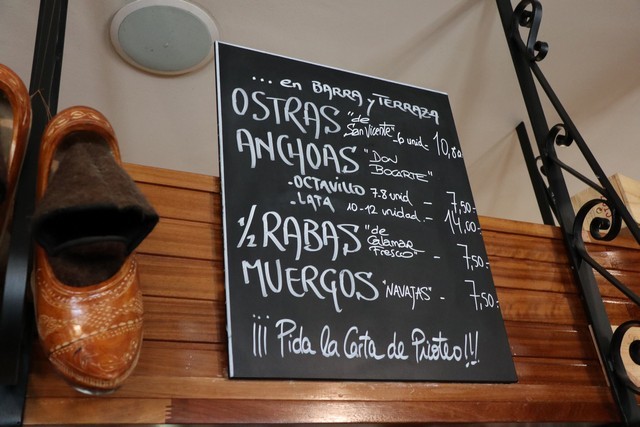 ... en BARRA y TERRAZA
OSTRAS "de San Vicente" - 6 unid - 10,80
ANCHOAS "DON BOCARTE"
- OCTAVILLO 7-8 unid - 7,50.-
- LATA 10-12 unidad - 14,00
½ RABAS "de Calamar Fresco" - 7,50.-
MUERGOS "NAVAJAS" - 7,50.-
¡¡¡ Pida la Carta de Picoteo!!!